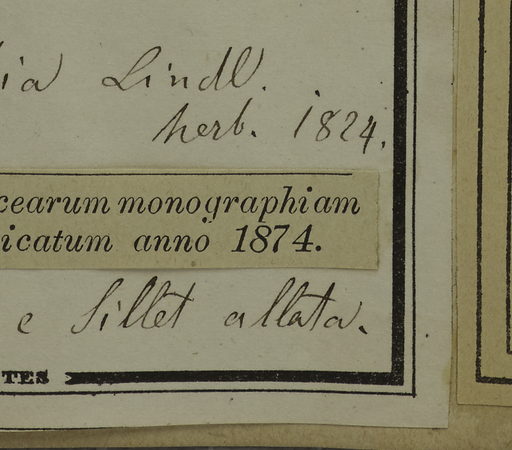 ia Lindl.
herb. 1824.
cearum monographiam
icatum anno 1874.
e Sillet allata.
TES